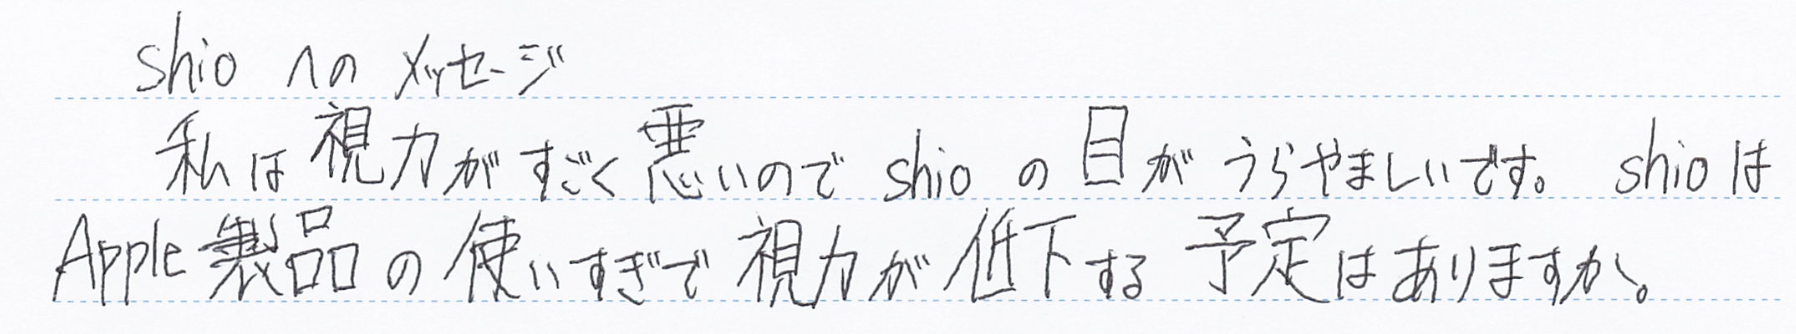 shioへのメッセージ
私は視力がすごく悪いのでshioの目がうらやましいです。shioは
Apple製品の使いすぎで視力が低下する予定はありますか。